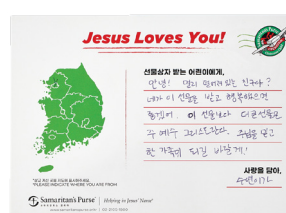 Jesus Loves You!
선물상자 받는 어린이에게,
안녕! 멀리 떨어져 있는 친구야?
네가 이 선물을 받고 행복했으면
좋겠어. 이 선물보다 더 큰 선물은
주 예수 그리스도란다. 주님을 믿고
한 가족이 되길 바랄게!
*PLEASE INDICATE WHERE YOU ARE FROM
사랑을 담아,
Samaritan's Purse
Helping in Jesus' Name